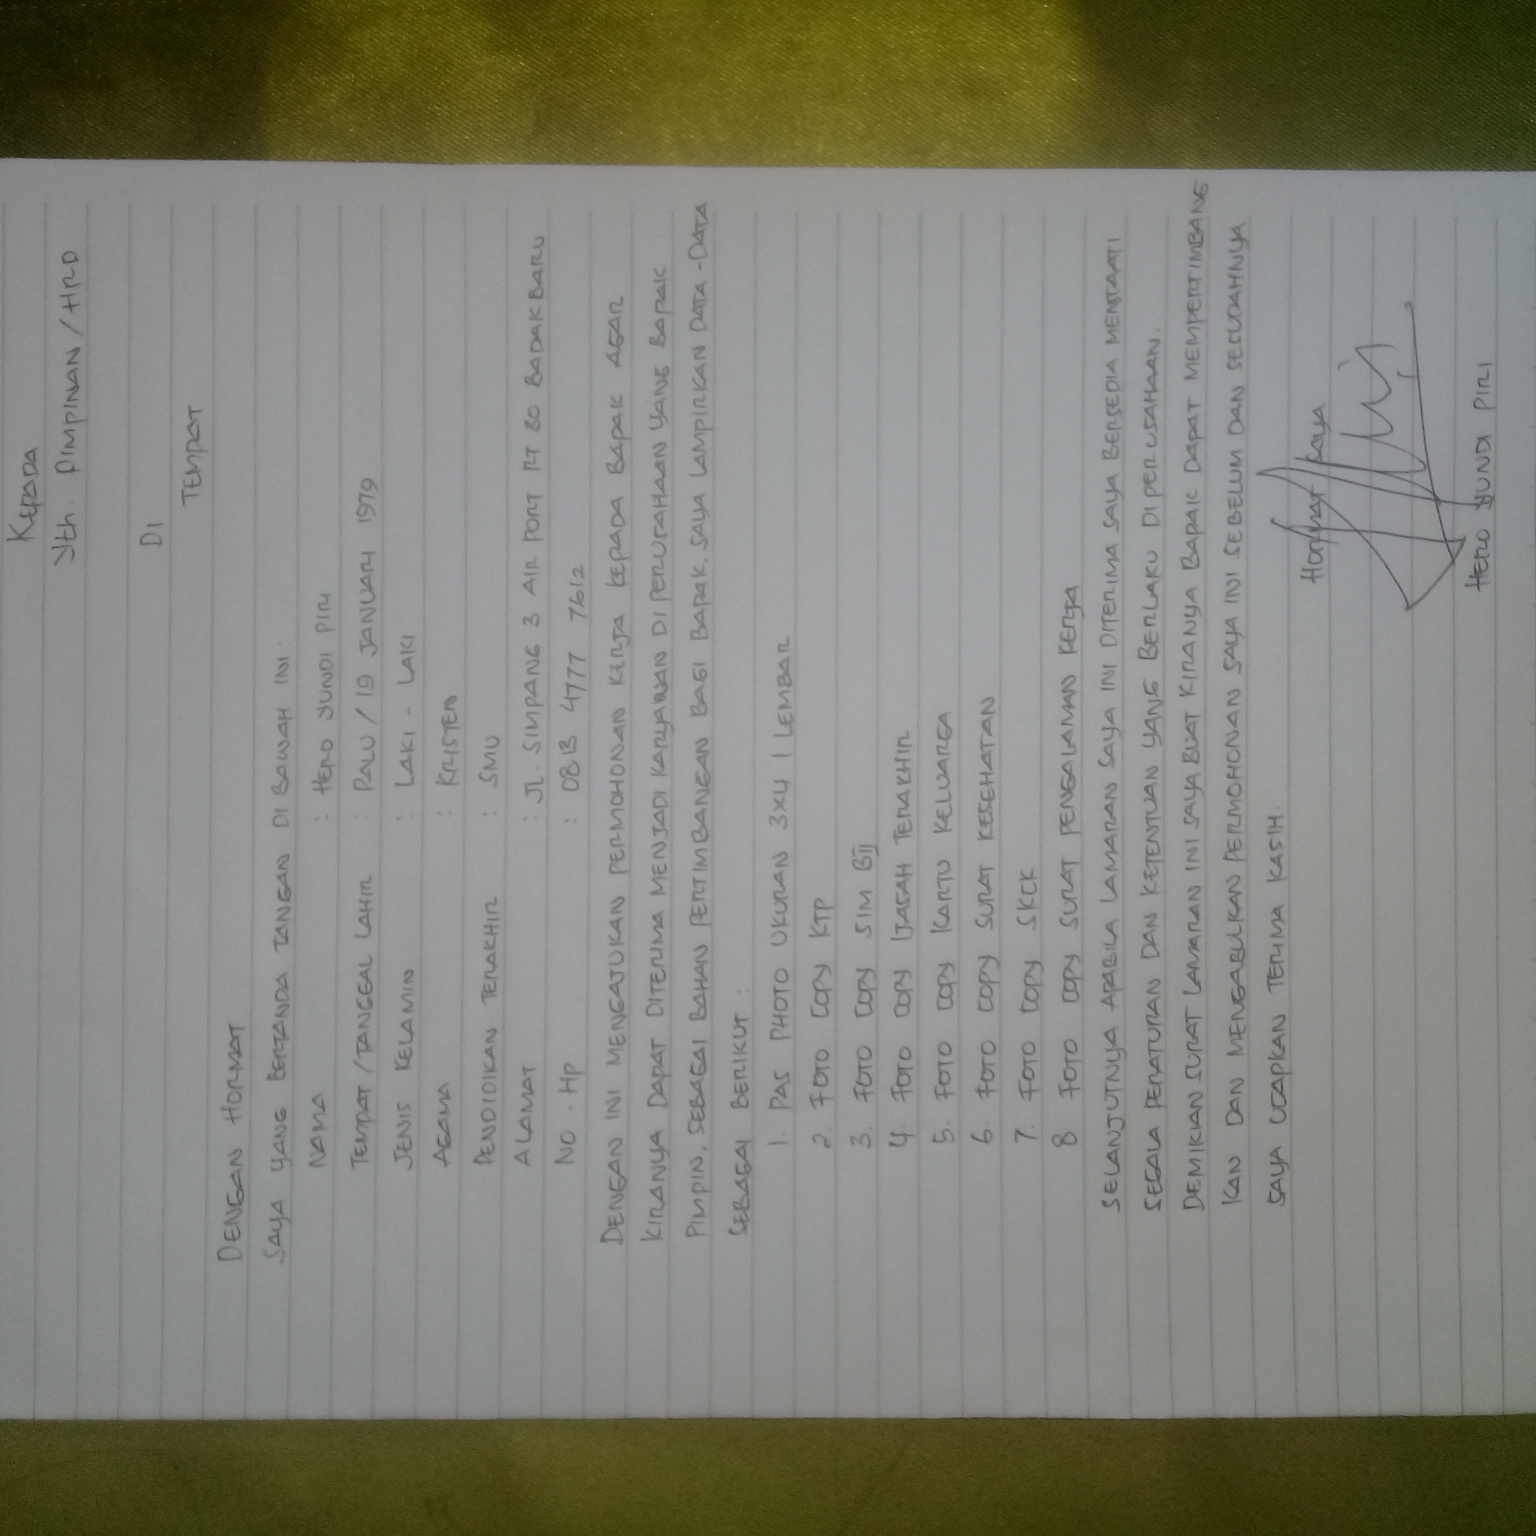 KEPADA
Yth. PIMPINAN / HRD
DI
TEMPAT
DENGAN HORMAT
SAYA YANG BERTANDA TANGAN DI BAWAH INI :
NAMA : HERO YUNDI PIRI
TEMPAT / TANGGAL LAHIR : PALU / 19 JANUARI 1979
JENIS KELAMIN : LAKI - LAKI
AGAMA : KRISTEN
PENDIDIKAN TERAKHIR : SMU
ALAMAT : JL. SIMPANG 3 AIR PORT RT 30 BADAK BARU
NO. HP : 0813 4777 7612
DENGAN INI MENGAJUKAN PERMOHONAN KERJA KEPADA BAPAK AGAR
KIRANYA DAPAT DITERIMA MENJADI KARYAWAN DI PERUSAHAAN YANG BAPAK
PIMPIN. SEBAGAI BAHAN PERTIMBANGAN BAGI BAPAK. SAYA LAMPIRKAN DATA - DATA
SEBAGAI BERIKUT :
1. PAS PHOTO UKURAN 3X4 1 LEMBAR
2. FOTO COPY KTP
3. FOTO COPY SIM BII
4 FOTO COPY IJASAH TERAKHIR
5. FOTO COPY KARTU KELUARGA
6. FOTO COPY SURAT KESEHATAN
7. FOTO COPY SKCK
8 FOTO COPY SURAT PENGALAMAN KERJA
SELANJUTNYA APABILA LAMARAN SAYA INI DITERIMA SAYA BERSEDIA MENTAATI
SEGALA PERATURAN DAN KETENTUAN YANG BERLAKU DI PERUSAHAAN.
DEMIKIAN SURAT LAMARAN INI SAYA BUAT KIRANYA BAPAK DAPAT MEMPERTIMBANG
KAN DAN MENGABULKAN PERMOHONAN SAYA INI SEBELUM DAN SESUDAHNYA
SAYA UCAPKAN TERIMA KASIH.
Hormat saya
HERO YUNDI PIRI